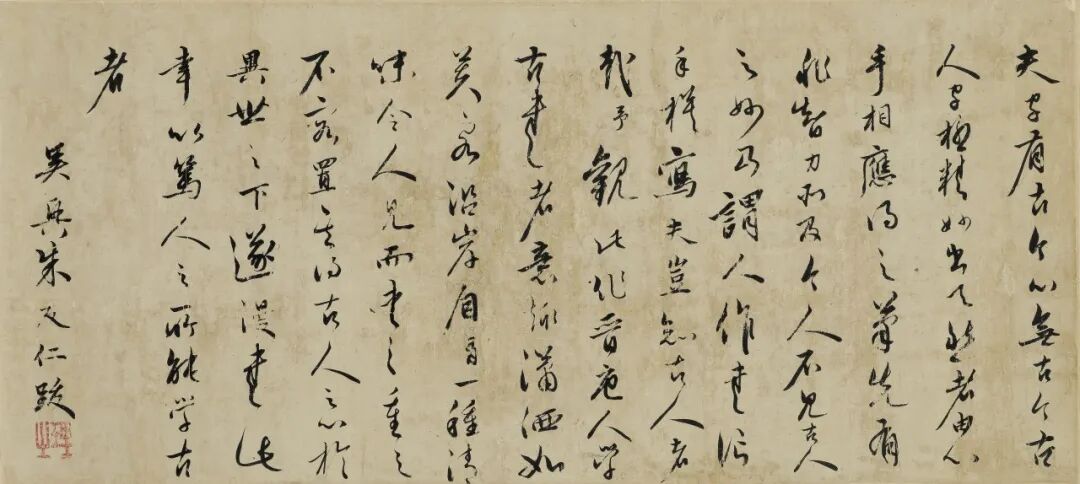 夫字有古今心無古今古
人字極精妙出天然者由心
手相應得之筆先有
非智力所及今人不見古人
之妙乃謂人作書信
手模寫夫豈知古人者
哉予觀此作晉唐人學
古書者意瀟洒如
芙蓉沿岸自一種清
味令人見而愛之重之
不容置其得古人之心於
異世之下遂漫書此
幸以篤人之所能学古
者
吳興朱仁跋